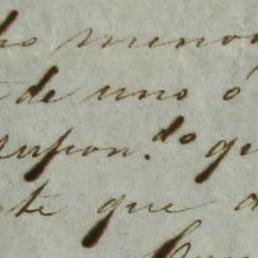 ho menor
de uno ó
supon.do qu
te que d